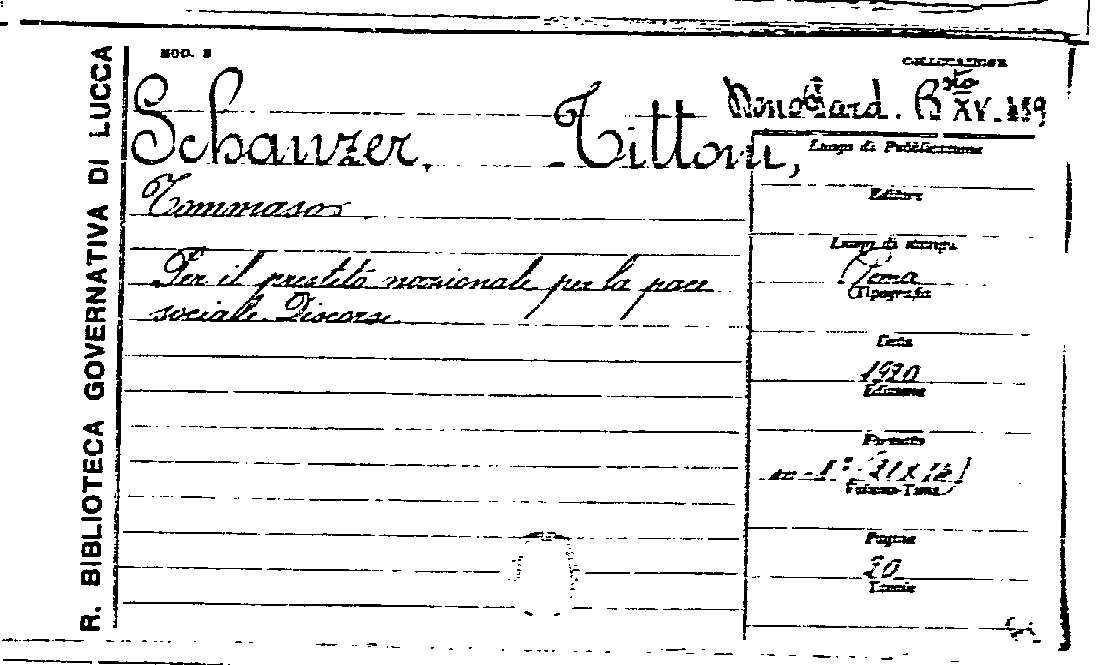 R. BIBLIOTECA GOVERNATIVA DI LUCCA
MOD. S
COLLOCAZIONE
Busta XV. 159
Schanzer, Tittoni,
Tommaso
Per il prestito nazionale per la pace
sociale Discorsi
Luogo di Pubblicazione
Editore
Luogo di stampa
Roma
Tipografia
Data
1920
Edizione
Formato
in-8° (21x14)
Volume-Tomo
Pagine
20
Tavole